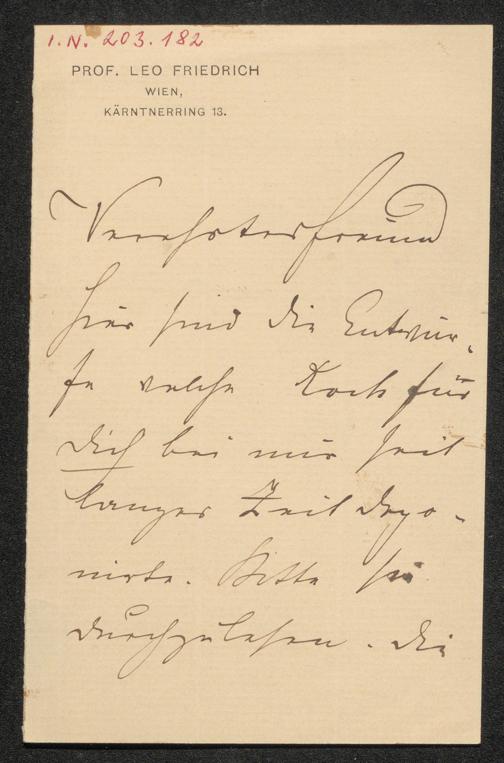 I.N. 203.182
PROF. LEO FRIEDRICH
WIEN,
KÄRNTNERRING 13.
Verehrter Freund
Hier sind die Entwür-
fe welche Koch für
Dich bei mir seit
langer Zeit depo-
nirte. Bitte sie
durchzulesen. Die